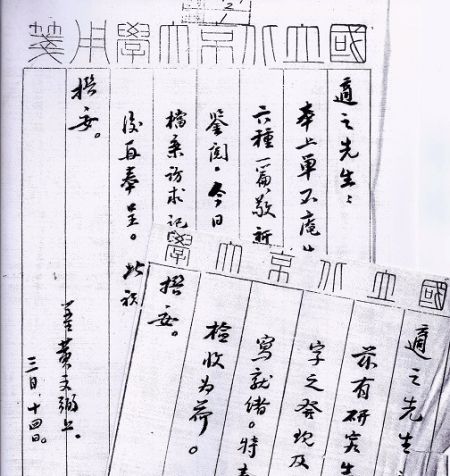 國立北京大學用箋
適之先生：
奉上單不庵
六種一篇敬祈
鑒閱。今日
檔案訪求記
後再奉呈。此頌
撰安。
黃文弼上。
三月十四日。
國立北京大學
適之先生
茲有研究生
字之發現及
寫就緒。特
檢收為荷。
撰安。